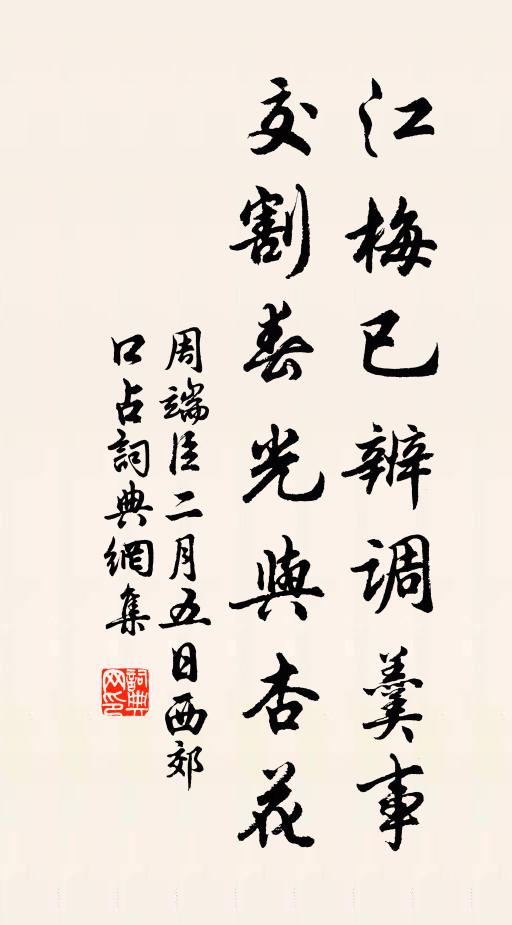 江梅已辦调羹事
交割春光與杏花
周端臣二月五日西郊
口占詞典網集
詞典網印